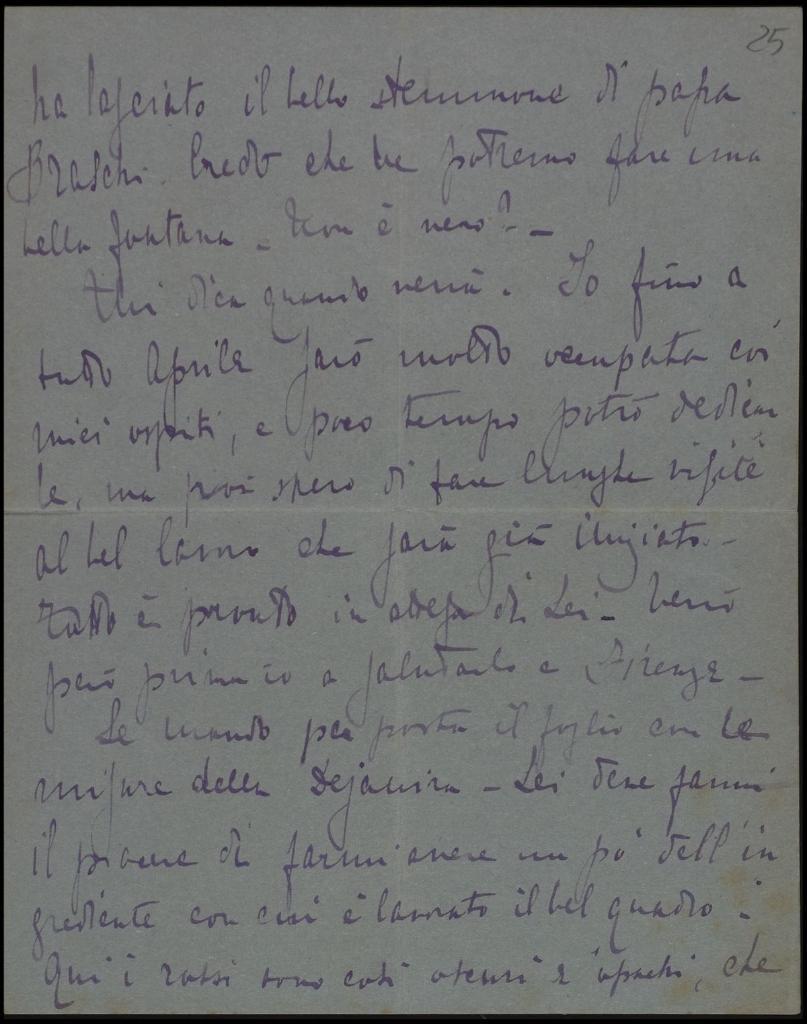 25
ha lasciato il bello stemmone di papa
Braschi. Credo che ne potremo fare una
bella fontana – Non è vero? –
Mi dica quando verrà. Io fino a
tutto Aprile sarò molto occupata coi
miei ospiti, e poco tempo potrò dedicar
le, ma poi spero di fare lunghe visite
al bel lavoro che sarà già iniziato. –
Tutto è pronto in attesa di Lei – Verrò
però prima io a salutarlo a Firenze –
Le mando per posta il foglio con le
misure della Dejanira – Lei deve farmi
il piacere di farmi avere un pò dell'in
grediente con cui è lavorato il bel quadro.
Qui i rossi sono così oscuri e opachi, che